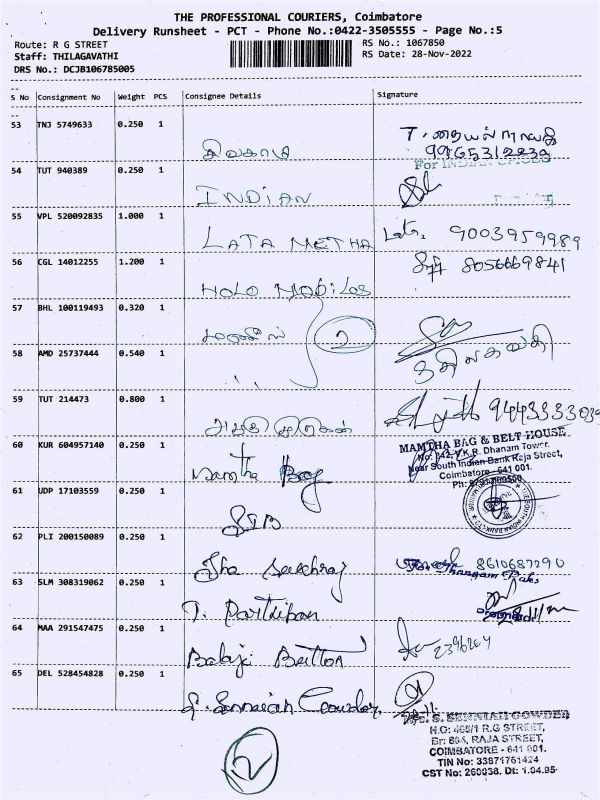 THE PROFESSIONAL COURIERS, Coimbatore
Delivery Runsheet - PCT - Phone No.:0422-3505555 - Page No.:5
Route: R G STREET
Staff: THILAGAVATHI
DRS No.: DCJB106785005
RS No.: 1067850
RS Date: 28-Nov-2022
S No Consignment No Weight PCS Consignee Details Signature
53 TNJ 5749633 0.250 1
9965312239
For INDIAN SPICES
54 TUT 940389 0.250 1 INDIAN
55 VPL 520092835 1.000 1 LATA METHA Lata. 9003959989
56 CGL 14012255 1.200 1 HOLO MOBILES 8056669841
57 BHL 100119493 0.320 1 2
58 AMD 25737444 0.540 1 " ததிலகவதி
59 TUT 214473 0.800 1 9443333039
60 KUR 604957140 0.250 1 Mamtha Bag
MAMTHA BAG & BELT HOUSE
No: 142, V.K.R. Dhanam Tower,
Near South Indian Bank Raja Street,
Coimbatore - 641 001.
61 UDP 17103559 0.250 1 SIB
THE SOUTH INDIAN BANK LTD
62 PLI 200150089 0.250 1 8610687290
Thangam Paks
63 SLM 308319062 0.250 1 T. Parthiban
64 MAA 291547475 0.250 1 Balaji Button
65 DEL 528454828 0.250 1 S. Sennaiah Gowder
S. SENNIAH GOWDER
H.O: 465/1 R.G STREET,
Br: 604, RAJA STREET,
COIMBATORE - 641 001.
TIN No: 33871761424
CST No: 260038. Dt: 1.04.95
2